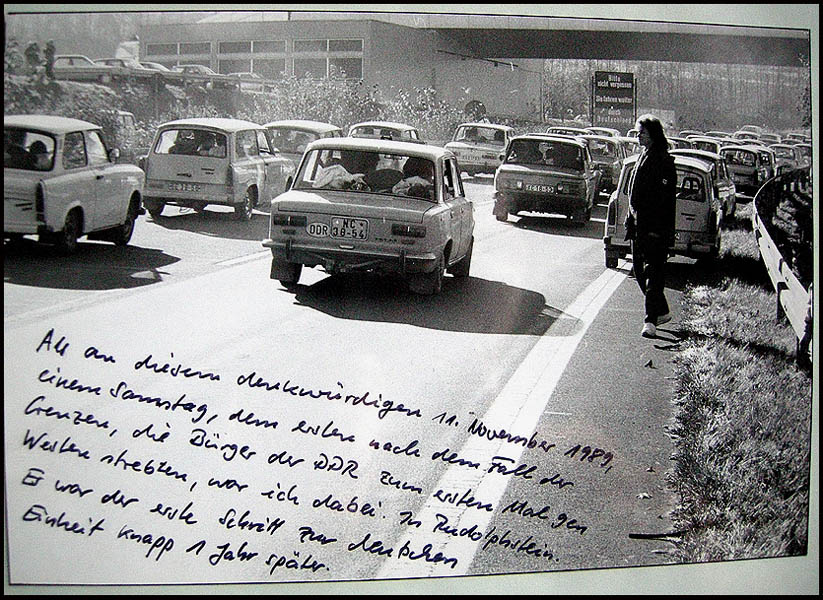 Bitte
nicht vergessen
Sie fahren weiter
durch
Deutschland
DDR NC 38-54
Als an diesem denkwürdigen 11. November 1989,
einem Samstag, dem ersten nach dem Fall der
Grenzen, die Bürger der DDR zum ersten Mal gen
Westen strebten, war ich dabei. In Rudolphstein.
Es war der erste Schritt zur deutschen
Einheit knapp 1 Jahr später.